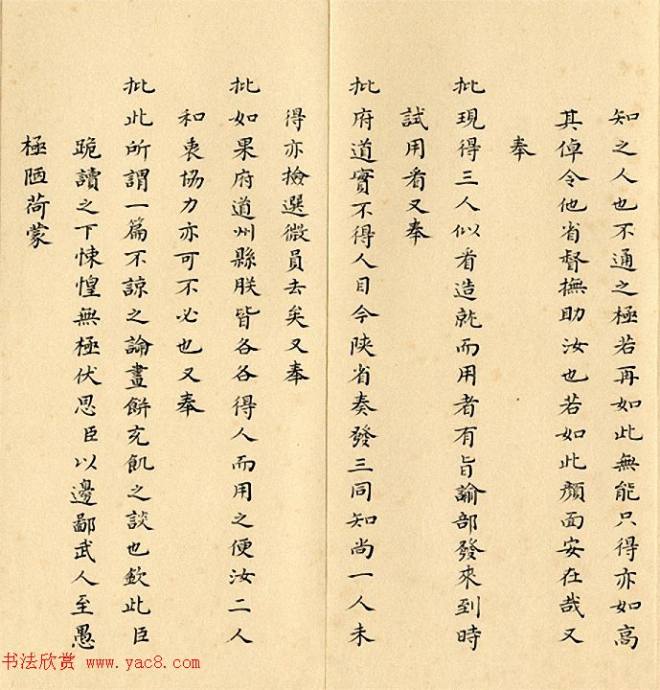 知之人也不通之極若再如此無能只得亦如高
其倬令他省督撫助汝也若如此顏面安在哉又
奉
批現得三人似看造就而用者有旨諭部發來到時
試用看又奉
批府道實不得人目今陝省奏發三同知尚一人未
得亦撿選微員去矣又奉
批如果府道州縣朕皆各各得人而用之便汝二人
和衷協力亦可不必也又奉
批此所謂一篇不諒之論畫餅充飢之談也欽此臣
跪讀之下悚惶無極伏思臣以邊鄙武人至愚
極陋荷蒙
书法欣赏 www.yac8.com